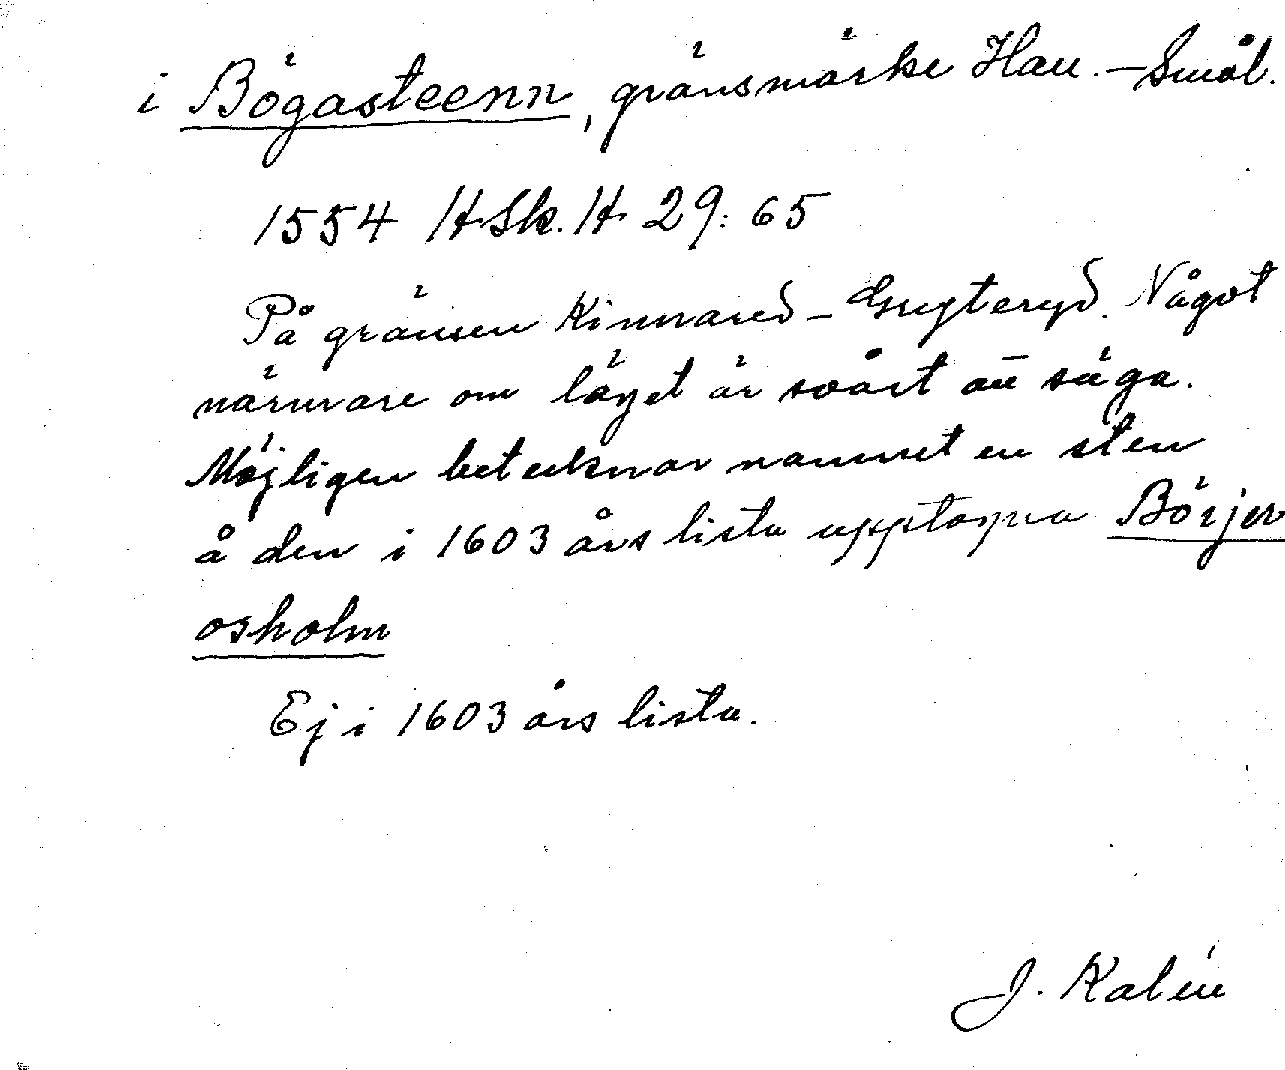 i Bögasteenn, gränsmärke Hall.-Smål.
1554 HSk.H 29:65
På gränsen Kinnared-Gryteryd. Något
närmare om läget är svårt att säga.
Möjligen betecknar namnet en sten
å den i 1603 års lista upptagna Börjer
osholm
Ej i 1603 års lista.
J. Kalén